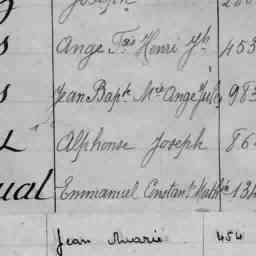 Joseph
Ange Fçois Henri Jh 453
Jean Bapte Mie Ange Jules 983
Alphonse Joseph 86
ual Emmanuel Constant Math 134
Jean Marie 454